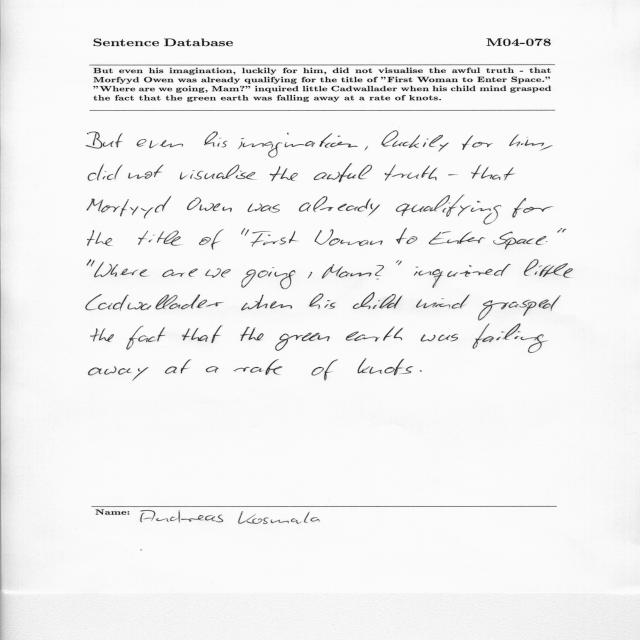 Sentence Database M04-078
But even his imagination, luckily for him, did not visualise the awful truth - that
Morfyyd Owen was already qualifying for the title of "First Woman to Enter Space."
"Where are we going, Mam?" inquired little Cadwallader when his child mind grasped
the fact that the green earth was falling away at a rate of knots.
But even his imagination, luckily for him,
did not visualise the awful truth - that
Morfyyd Owen was already qualifying for
the title of "First Woman to Enter Space."
"Where are we going, Mam?" inquired little
Cadwallader when his child mind grasped
the fact that the green earth was failing
away at a rate of knots.
Name: Andreas Kosmala